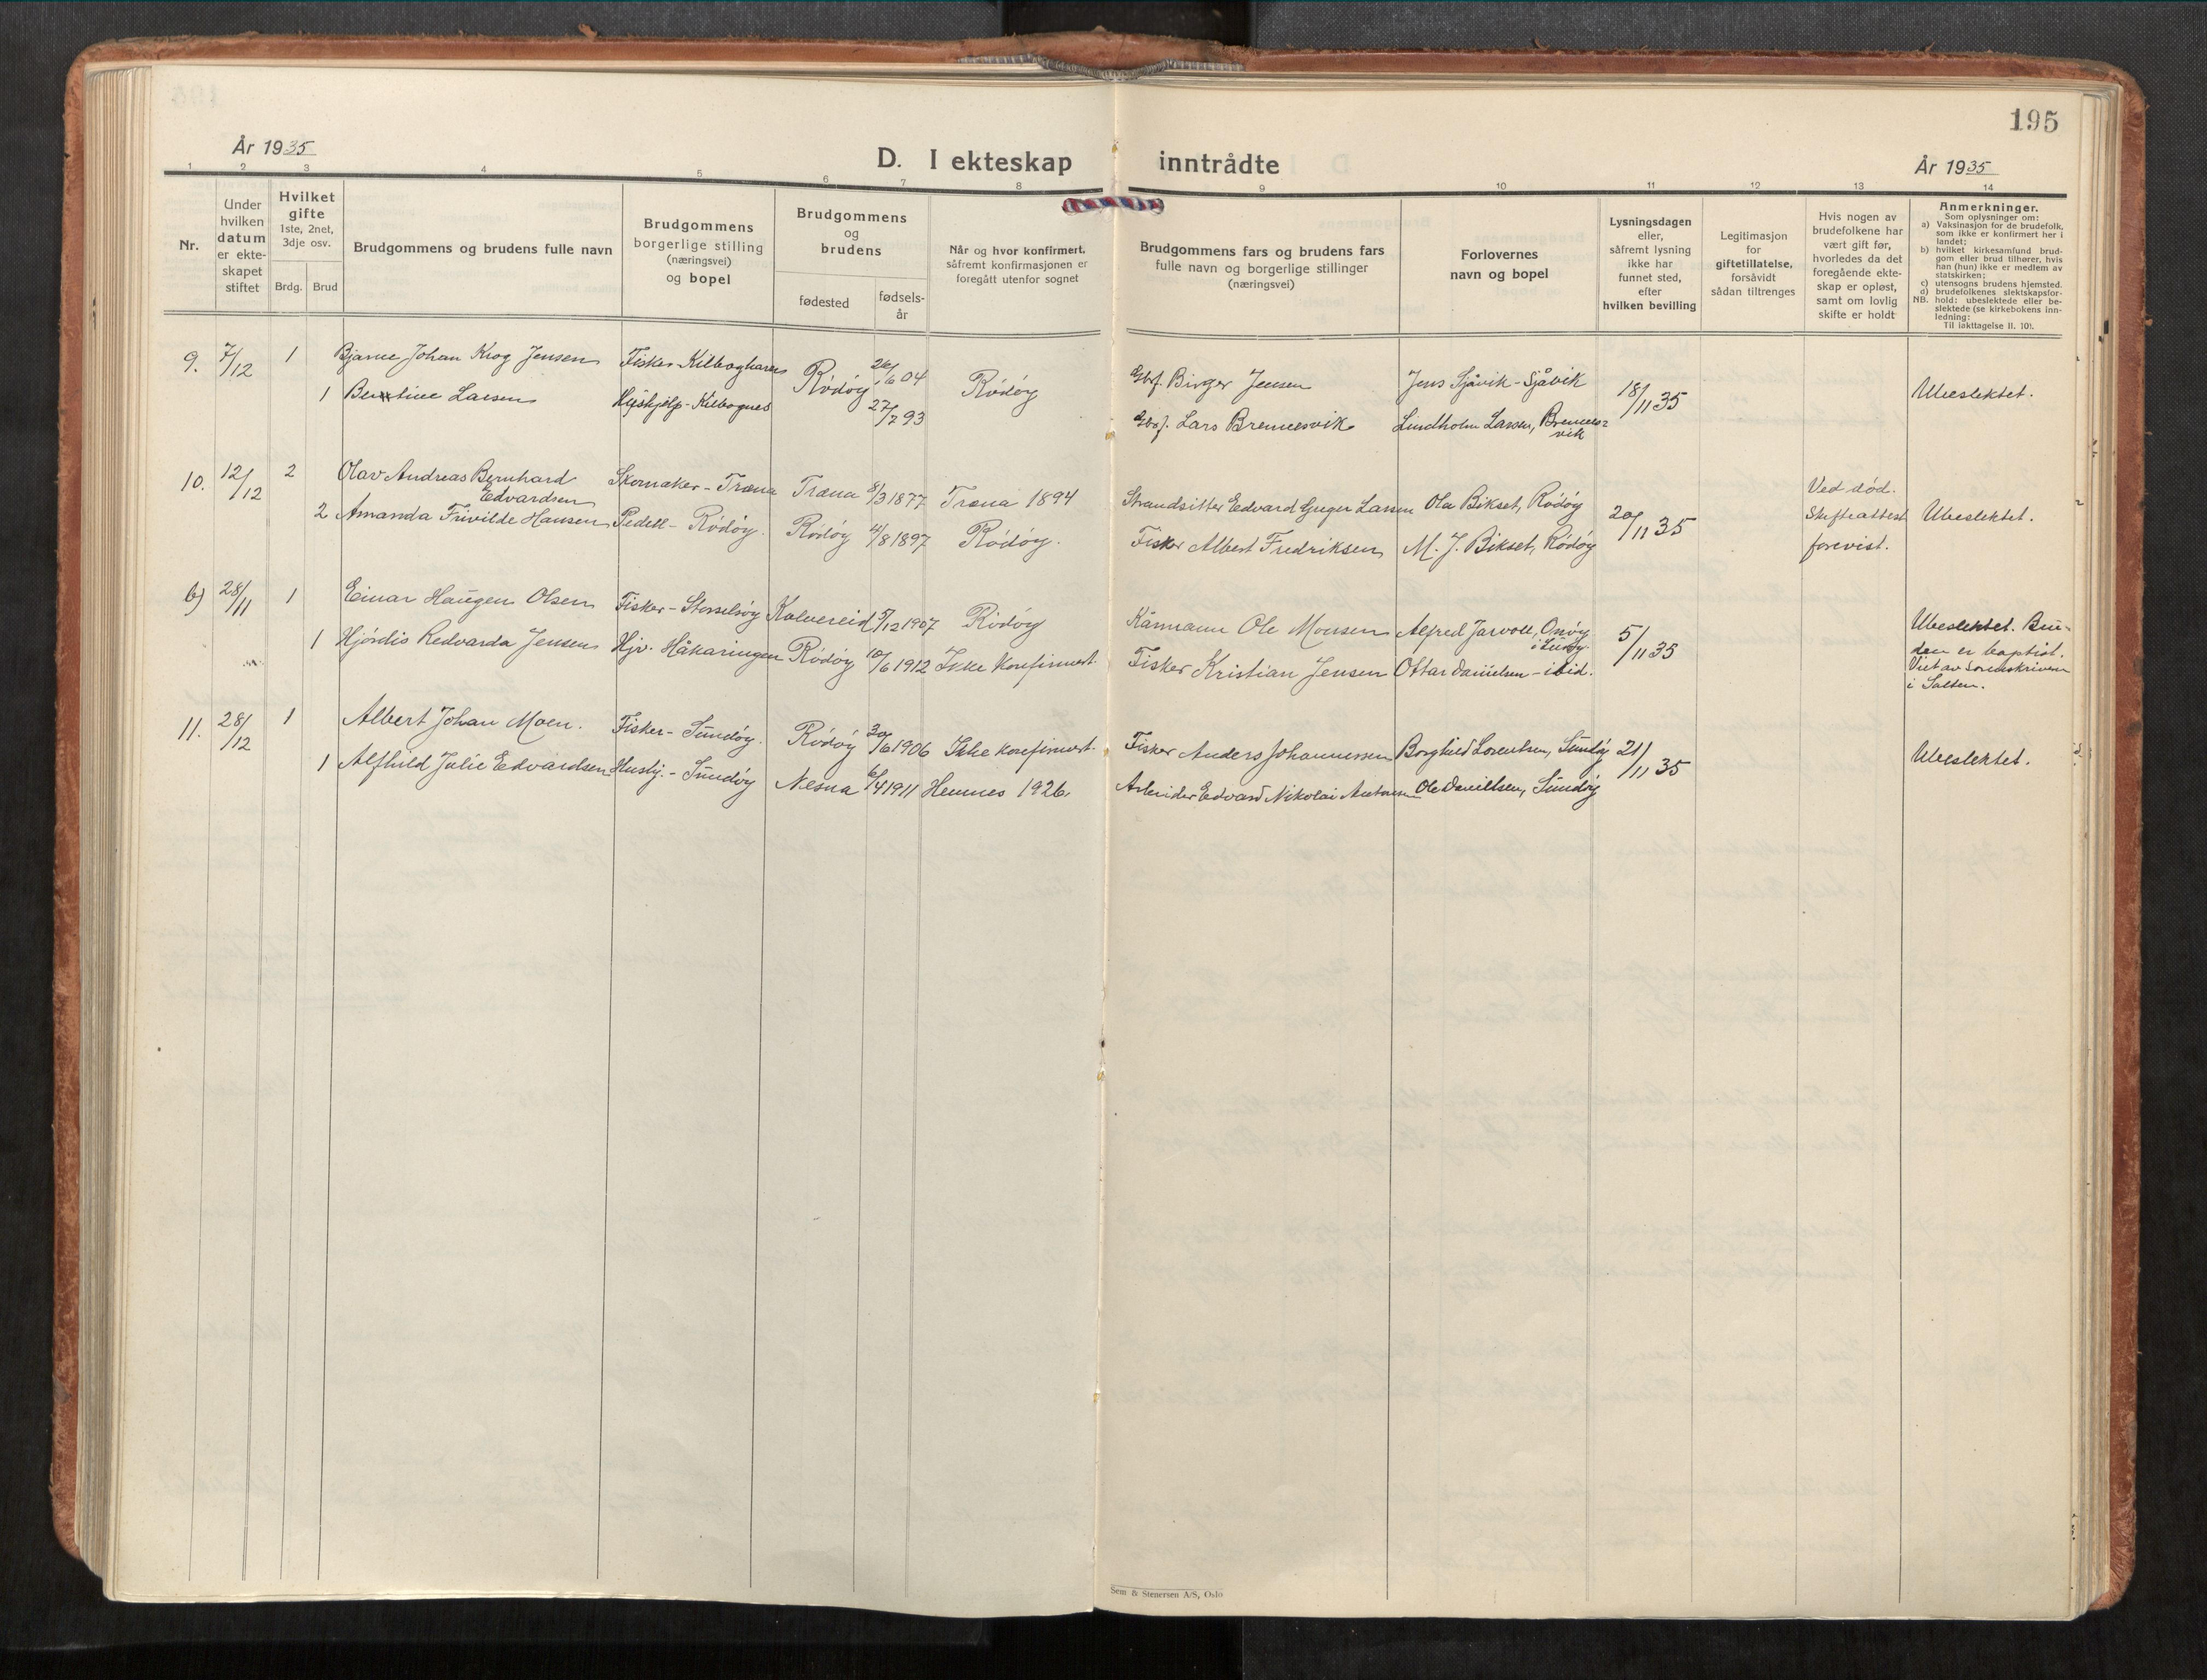 195
År 1935
D. I ekteskap inntrådte
År 1935
1 2 3 4 5 6 7 8 9 10 11 12 13 14
Nr.
Under
hvilken
datum
er ekte-
skapet
stiftet
Hvilket
gifte
1ste, 2net,
3dje osv.
Brdg. Brud
Brudgommens og brudens fulle navn
Brudgommens
borgerlige stilling
(næringsvei)
og bopel
Brudgommens
og
brudens
fødested
fødsels-
år
Når og hvor konfirmert.
såfremt konfirmasjonen er
foregått utenfor sognet
Brudgommens fars og brudens fars
fulle navn og borgerlige stillinger
(næringsvei)
Forlovernes
navn og bopel
Lysningsdagen
eller,
såfremt lysning
ikke har
funnet sted,
efter
hvilken bevilling
Legitimasjon
for
giftetillatelse,
forsåvidt
sådan tiltrenges
Hvis nogen av
brudefolkene har
vært gift før,
hvorledes da det
foregående ekte-
skap er opløst,
samt om lovlig
skifte er holdt
Anmerkninger.
Som oplysninger om:
a) Vaksinasjon for de brudefolk,
som ikke er konfirmert her i
landet;
b) hvilket kirkesamfund brud-
gom eller brud tilhører, hvis
han (hun) ikke er medlem av
statskirken;
c) utensogns brudens hjemsted.
d) brudefolkenes slektskapsfor-
NB. hold: ubeslektede eller be-
slektede (se kirkebokens inn-
ledning:
Til iakttagelse II. 10).
9. 7/12 1 Bjarne Johan Krog Jensen Fisker-Kilboghavn Rødøy 26/6 04 Rødøy Gbrf. Birger Jensen Jens Sjåvik - Sjåvik 18/11 35 Ubeslektet.
1 Bentine Larsen Hushjelp-Kilbognes 27/2 93 Gbrf. Lars Brennesvik Lindholm Larsen, Brennes-
vik
10. 12/12 2 Olav Andreas Bernhard
Edvardsen Skomaker - Træna Træna 8/3 1877 Træna 1894 Strandsitter Edvard Greger Larsen Ola Bikset, Rødøy 20/11 35 Ved død.
Skifteattest
forevist. Ubeslektet.
2 Amanda Frivilde Hansen Pedell - Rødøy. Rødøy 4/8 1897 Rødøy. Fisker Albert Fredriksen M. J. Bikset, Rødøy
b) 28/11 1 Einar Haugen Olsen Fisker - Storselsøy Kolvereid 5/12 1907 Rødøy Kårmann Ole Monsen Alfred Jarvoll, Onøy
i Lurøy. 5/11 35 Ubeslektet. Bru-
den er baptist.
Viet av Sorenskriveren
i Salten.
1 Hjørdis Redvarda Jensen Hjv. Håkaringen Rødøy 10/6 1912 Ikke konfirmert. Fisker Kristian Jensen Ottar Danielsen - ibid.
11. 28/12 1 Albert Johan Moen. Fisker - Sundøy. Rødøy 30/6 1906 Ikke konfirmert. Fisker Anders Johannessen Borghild Lorentsen, Sundøy 21/11 35 Ubeslektet.
1 Alfhild Julie Edvardsen Hushj. - Sundøy Nesna 6/4 1911 Hemnes 1926. Arbeider Edvard Nikolai Antonsen Ole Danielsen, Sundøy
Sem & Stenersen A/S, Oslo